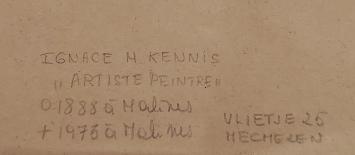 IGNACE M KENNIS
„ARTISTE PEINTRE"
O 1888 à Malines
+ 1973 à Malines
VLIETJE 25
MECHELEN